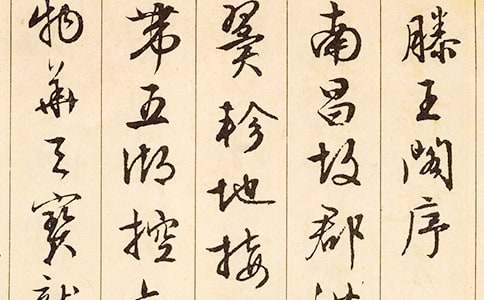 滕王阁序
南昌故郡洪
翼轸地接
带五湖控
物华天宝龙